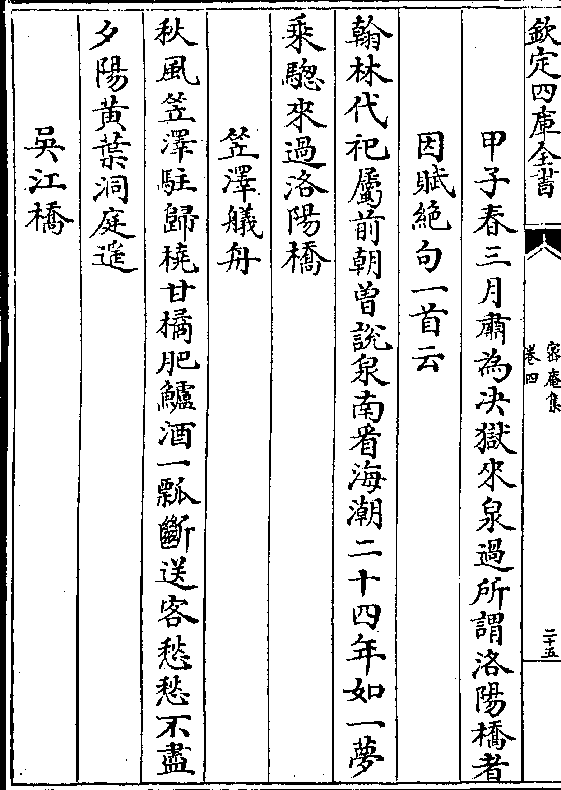 欽定四庫全書
密庵集
卷四
二十五
甲子春三月肅為決獄來泉過所謂洛陽橋者
因賦絶句一首云
翰林代祀屬前朝曽說泉南看海潮二十四年如一夢
乘驄來過洛陽橋
笠澤艤舟
秋風笠澤駐歸橈甘橘肥鱸酒一瓢斷送客愁愁不盡
夕陽黄葉洞庭遥
吳江橋